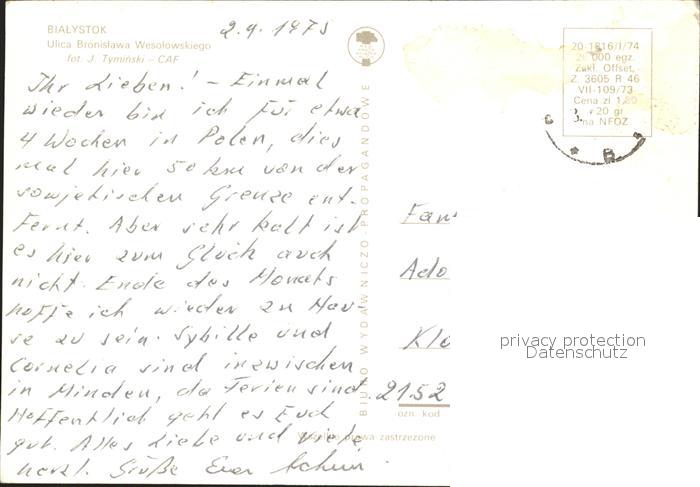 BIAŁYSTOK
Ulica Bronisława Wesołowskiego
fot. J. Tymiński – CAF
2.4.1975
Ihr Lieben! – Einmal
wieder bin ich für etwa
4 Wochen in Polen, dies
mal hier 50 km von der
sowjetischen Grenze ent-
fernt. Aber sehr kalt ist
es hier zum Glück auch
nicht. Ende des Monats
hoffe ich wieder zu Hau-
se zu sein. Sybille und
Cornelia sind inzwischen
in Minden, da Ferien sind.
Hoffentlich geht es Euch
gut. Alles Liebe und viele
herzl. Grüße Euer
BIURO WYDAWNICZO-PROPAGANDOWE
20-1816/I/74
egz.
Zakł. Offset.
Z. 3605 R 46
VII-109/73
Cena zł 1,80
+20 gr
na NFOZ
B
Fam
Ado
Klo
2152
ozn. kod
prawa zastrzeżone
privacy protection
Datenschutz